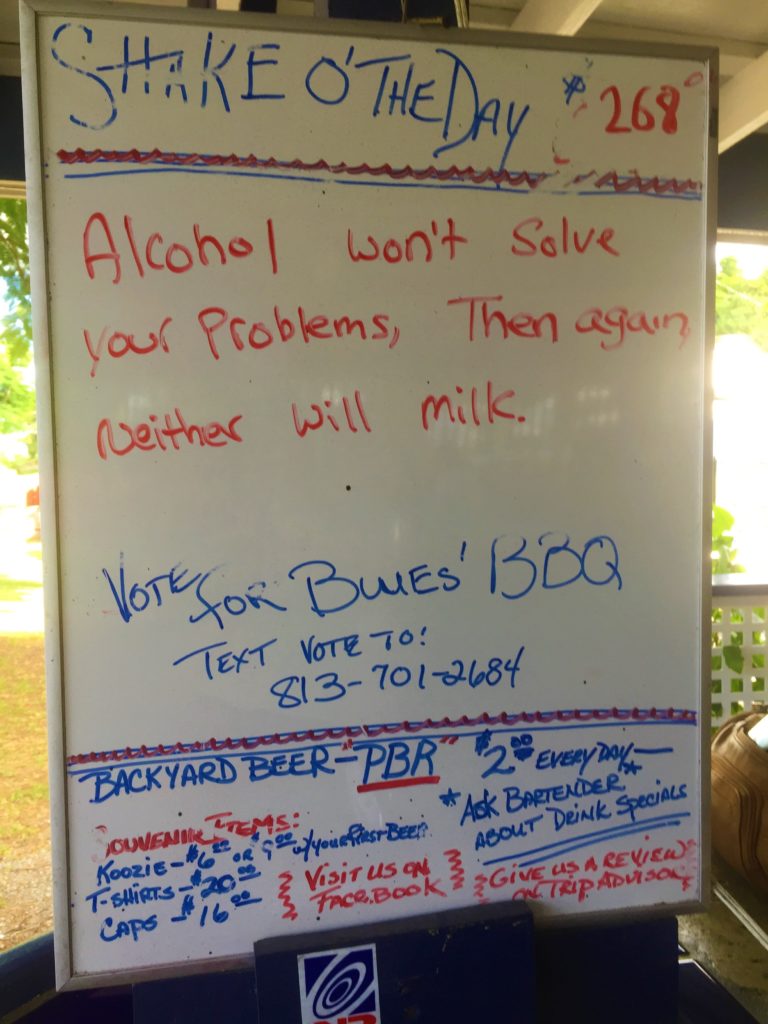 SHAKE O' THE DAY $268
Alcohol won't Solve
your Problems, Then again,
Neither will milk.
VOTE FOR BLUES' BBQ
TEXT VOTE TO!
813-701-2684
BACKYARD BEER-"PBR" $2.00 EVERYDAY—
*ASK BARTENDER*
ABOUT DRINK SPECIALS
SOUVENIR ITEMS:
KOOZIE-$6.00 OR $9.00 W/YOUR FIRST BEER
T-SHIRTS-$20.00
CAPS-$16.00
VISIT US ON
FACEBOOK
GIVE US A REVIEW
ON TRIP ADVISOR